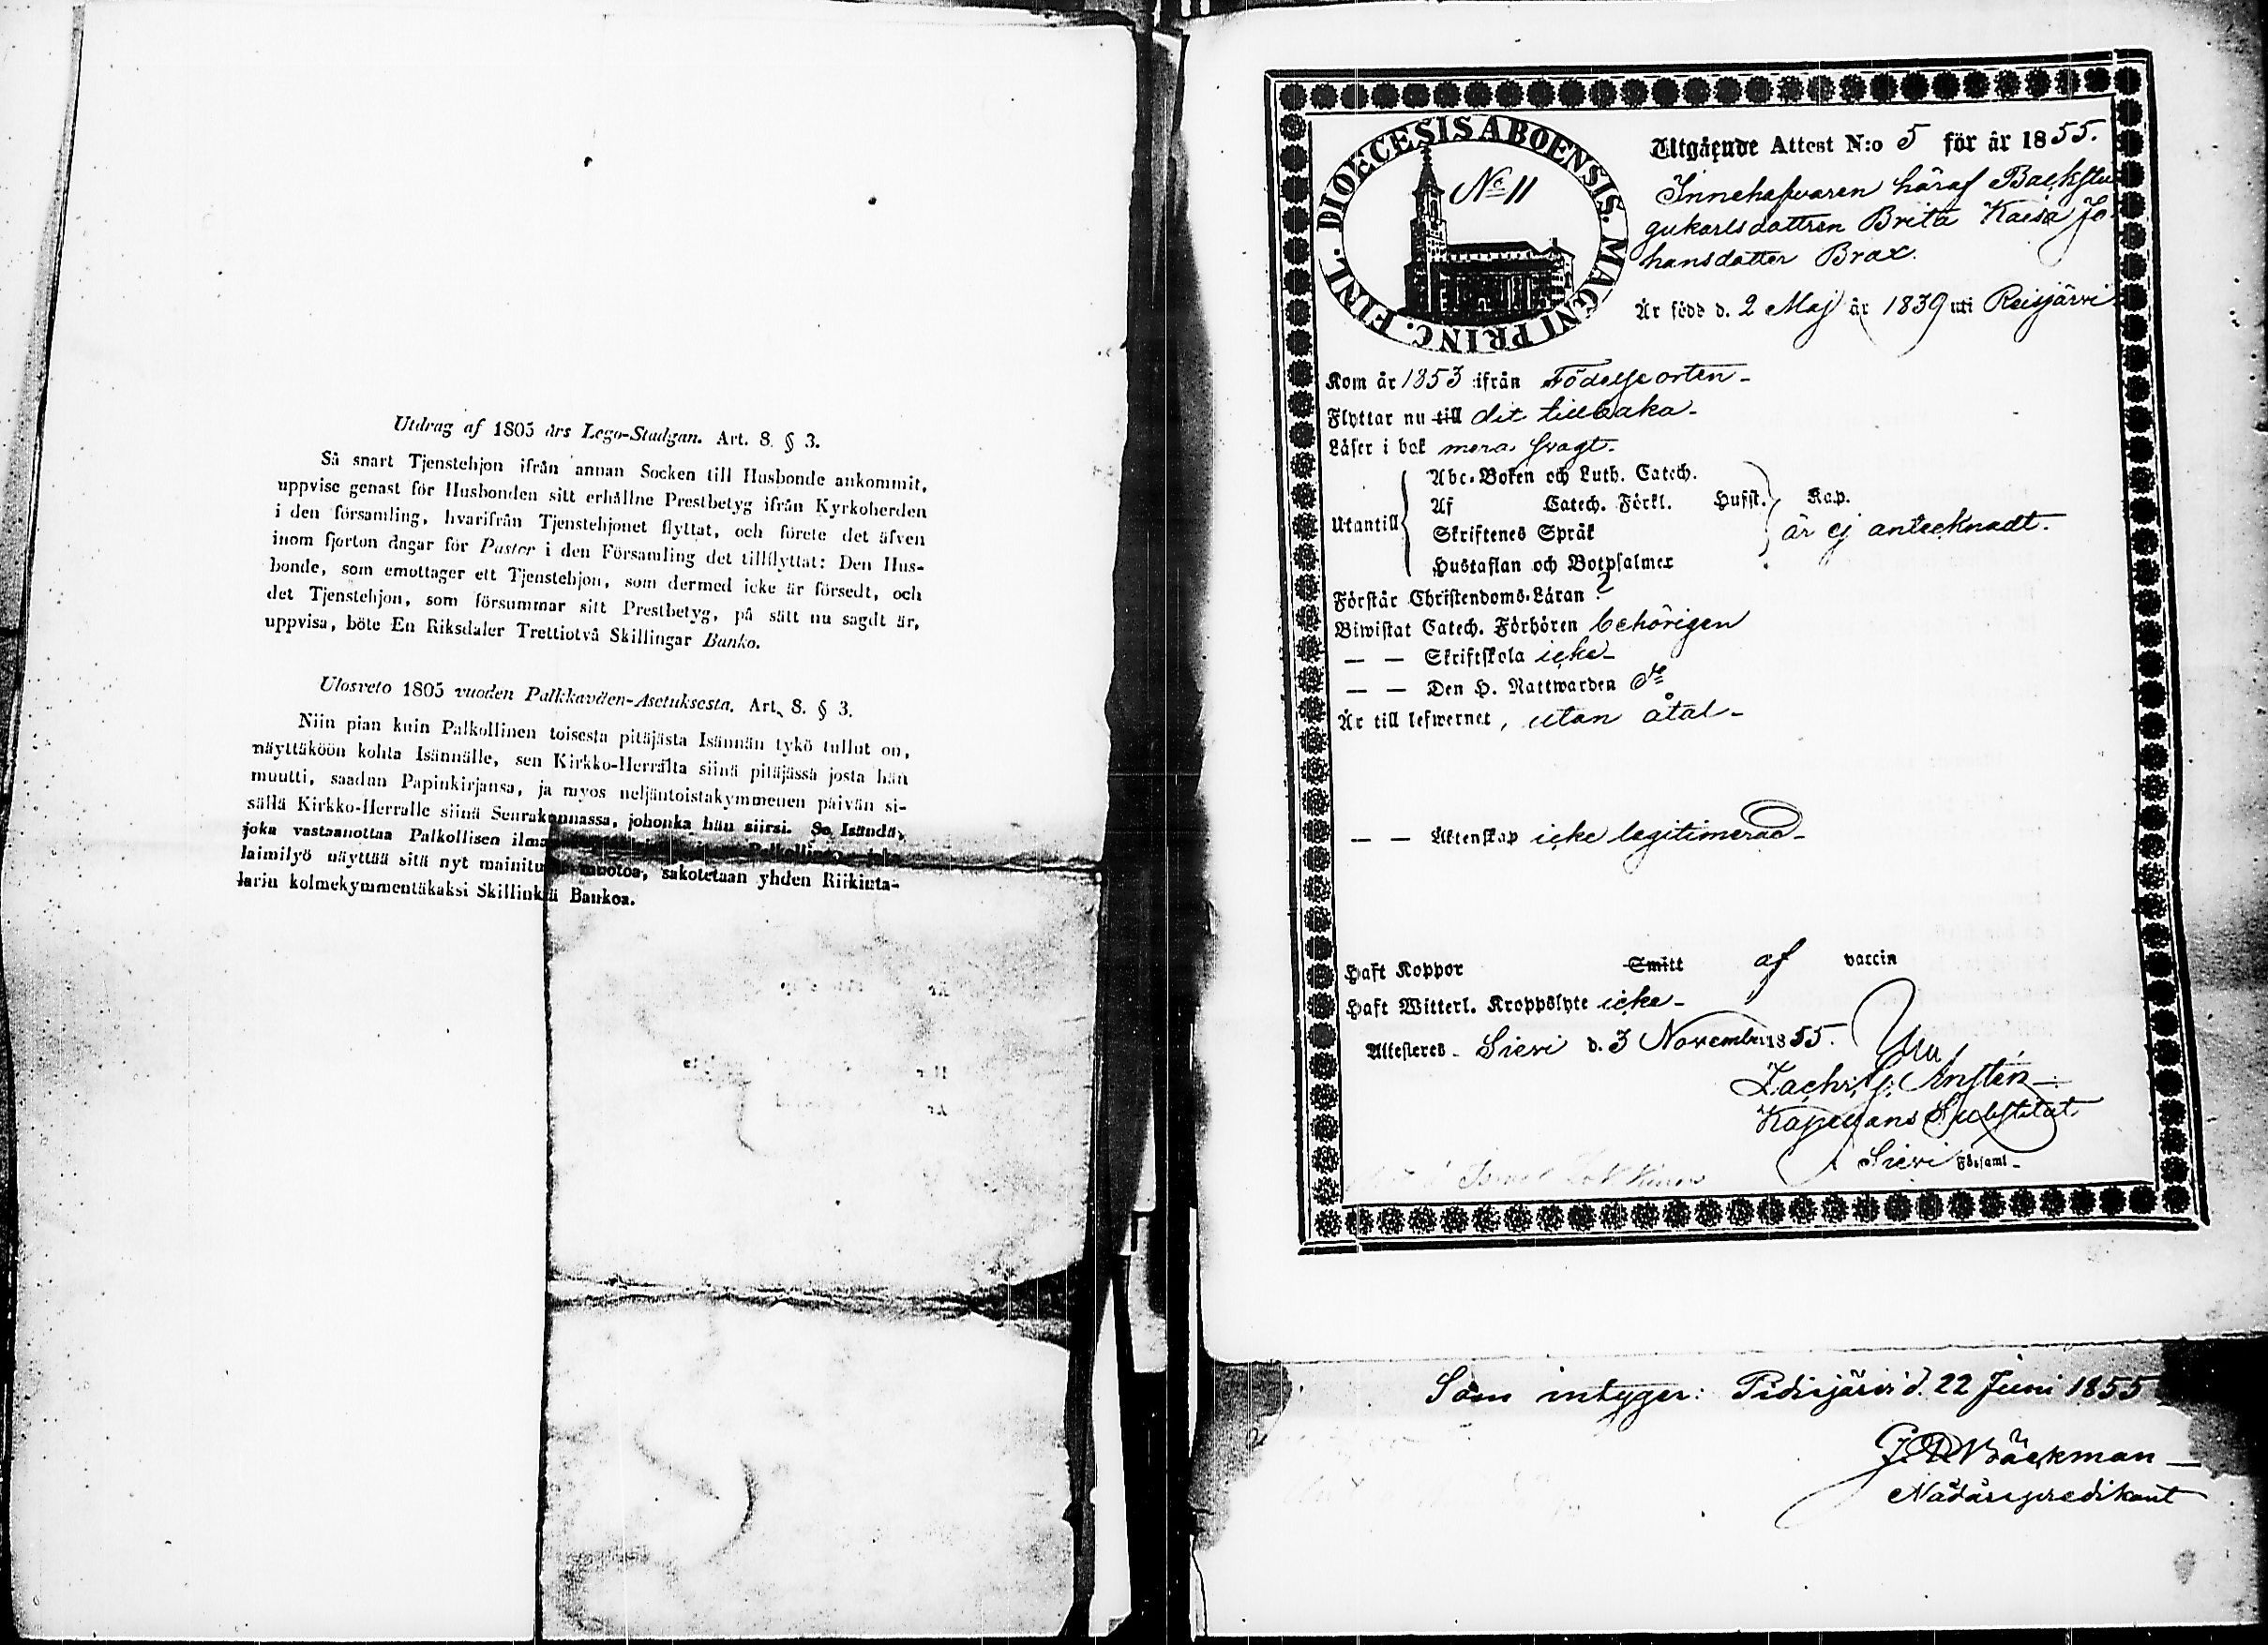 Utdrag af 1805 års Lego-Stadgan. Art. 8. § 3.
Så snart Tjenstehjon ifrån annan Socken till Husbonde ankommit,
uppvise genast för Husbonden sitt erhållne Prestbetyg ifrån Kyrkoherden
i den församling, hvarifrån Tjenstehjonet flyttat, och förete det äfven
inom fjorton dagar för Pastor i den Församling det tillflyttat: Den Hus-
bonde, som emottager ett Tjenstehjon, som dermed icke är försedt, och
det Tjenstehjon, som försummar sitt Prestbetyg, på sätt nu sagdt är,
uppvisa, böte En Riksdaler Trettiotvå Skillingar Banko.
Ulosveto 1805 vuoden Palkkaväen-Asetuksesta. Art. 8. § 3.
Niin pian kuin Palkollinen toisesta pitäjästa Isännän tykö tullut on,
näyttäköön kohta Isännälle, sen Kirkko-Herralta siinä pitäjässä josta hän
muutti, saadan Papinkirjansa, ja myos neljäntoistakymmenen päivän si-
sällä Kirkko-Herralle siinä Seurakunnassa, johonka hän siirsi. Se Isändä,
joka vastaanottaa Palkollisen ilma Palkollinen joka
laimilyö näyttää sitä nyt mainitu muotoa, sakotetaan yhden Riikinta-
larin kolmekymmentäkaksi Skillinkiä Bankoa.
DIOECESIS ABOENSIS. MAGNI PRINC. FINL.
No 11
Utgående Attest N:o 5 för år 1855.
Innehafvaren häraf Backstu
gukarlsdottren Brita Kaisa Jo-
hansdotter Brax.
Är född d. 2 Maj år 1839 uti Reisjärvi
Kom år 1853 ifrån Födelseorten-
Flyttar nu till dit tillbaka-
Läser i bok mera svagt.
Utantill
Abc-Boken och Luth. Catech.
Af Catech. Förkl. Hufst. Kap.
Skriftenes Språk
är ej antecknadt.
Hustaflan och Botpsalmer
Förstår Christendoms-Läran ?
Biwistat Catech. Förhören behörigen
— — Skriftskola icke-
— — Den H. Nattwarden do
Är till lefwernet, utan åtal-
— — Äktenskap icke legitimerad-
Haft Koppor Smitt af vaccin
Haft Witterl. Kroppslyte icke-
Attesteres- Sievi d. 3 November 1855.
Kapellans Substitut
Sievi Församl-
Som intyger: Pidisjärvi d. 22 Juni 1855
Bäckman
Nådårspredikant